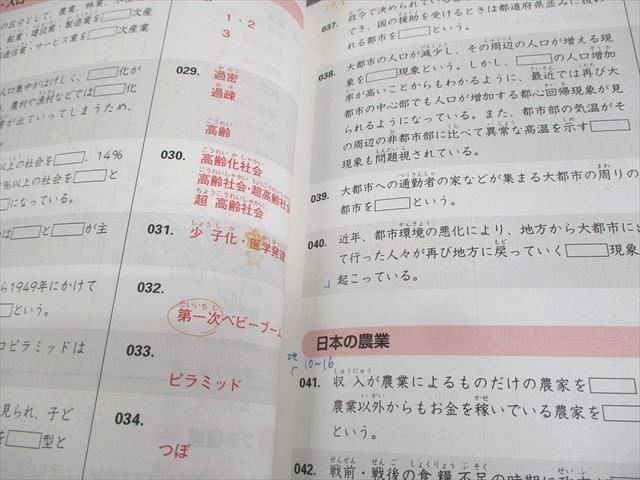 ・人口
の区分として、農業、林業、水産
鉱業・建設業・製造業を 次産
通信業・サービス業を 次産業
人口集中がはげしく、 化が
、農村や漁村などでは 化
者が出ていってしまうため、
以上の社会を 、14%
%以上の社会を と
になっている。
は と が主
ら1949年にかけて
という。
コピラミッドは
見られ、子ど
型と
1・2
3
029.
過密
過疎
高齢
030.
高齢化社会
高齢社会・超高齢社会
超高齢社会
031.
少子化・医学発達
032.
第一次ベビーブーム
033.
ピラミッド
034.
つぼ
037.
政令で決められている都
でき、国の援助を受けるときは都道府県並みに扱わ
れる都市を という。
038.
大都市の人口が減少し、その周辺の人口が増える現
象を 現象という。しかし、 の人口増加
率が高いことからもわかるように、最近では再び大
都市の中心部でも人口が増加する都心回帰現象が見
られるようになっている。また、都市部の気温がそ
の周辺の非都市部に比べて異常な高温を示す
現象も問題視されている。
039.
大都市への通勤者の家などが集まる大都市の周りの
都市を という。
040.
近年、都市環境の悪化により、地方から大都市に出
て行った人々が再び地方に戻っていく 現象
起こっている。
日本の農業
地 10~16
041.
収入が農業によるものだけの農家を
農業以外からもお金を稼いでいる農家を
という。
042.
戦前・戦後の食糧不足の時期に